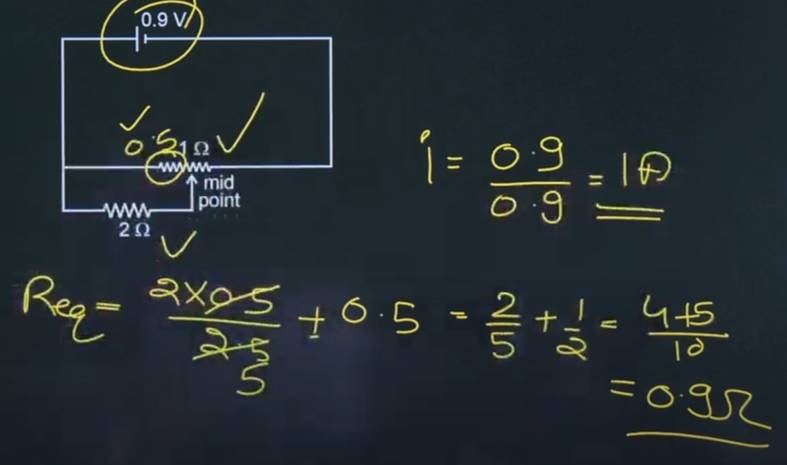 0.9 V
0.5 1 Ω
mid
point
2 Ω
i = 0.9 / 0.9 = 1A
Req = 2×0.5 / 2.5 5 + 0.5 = 2/5 + 1/2 = 4+5 / 10
= 0.9Ω